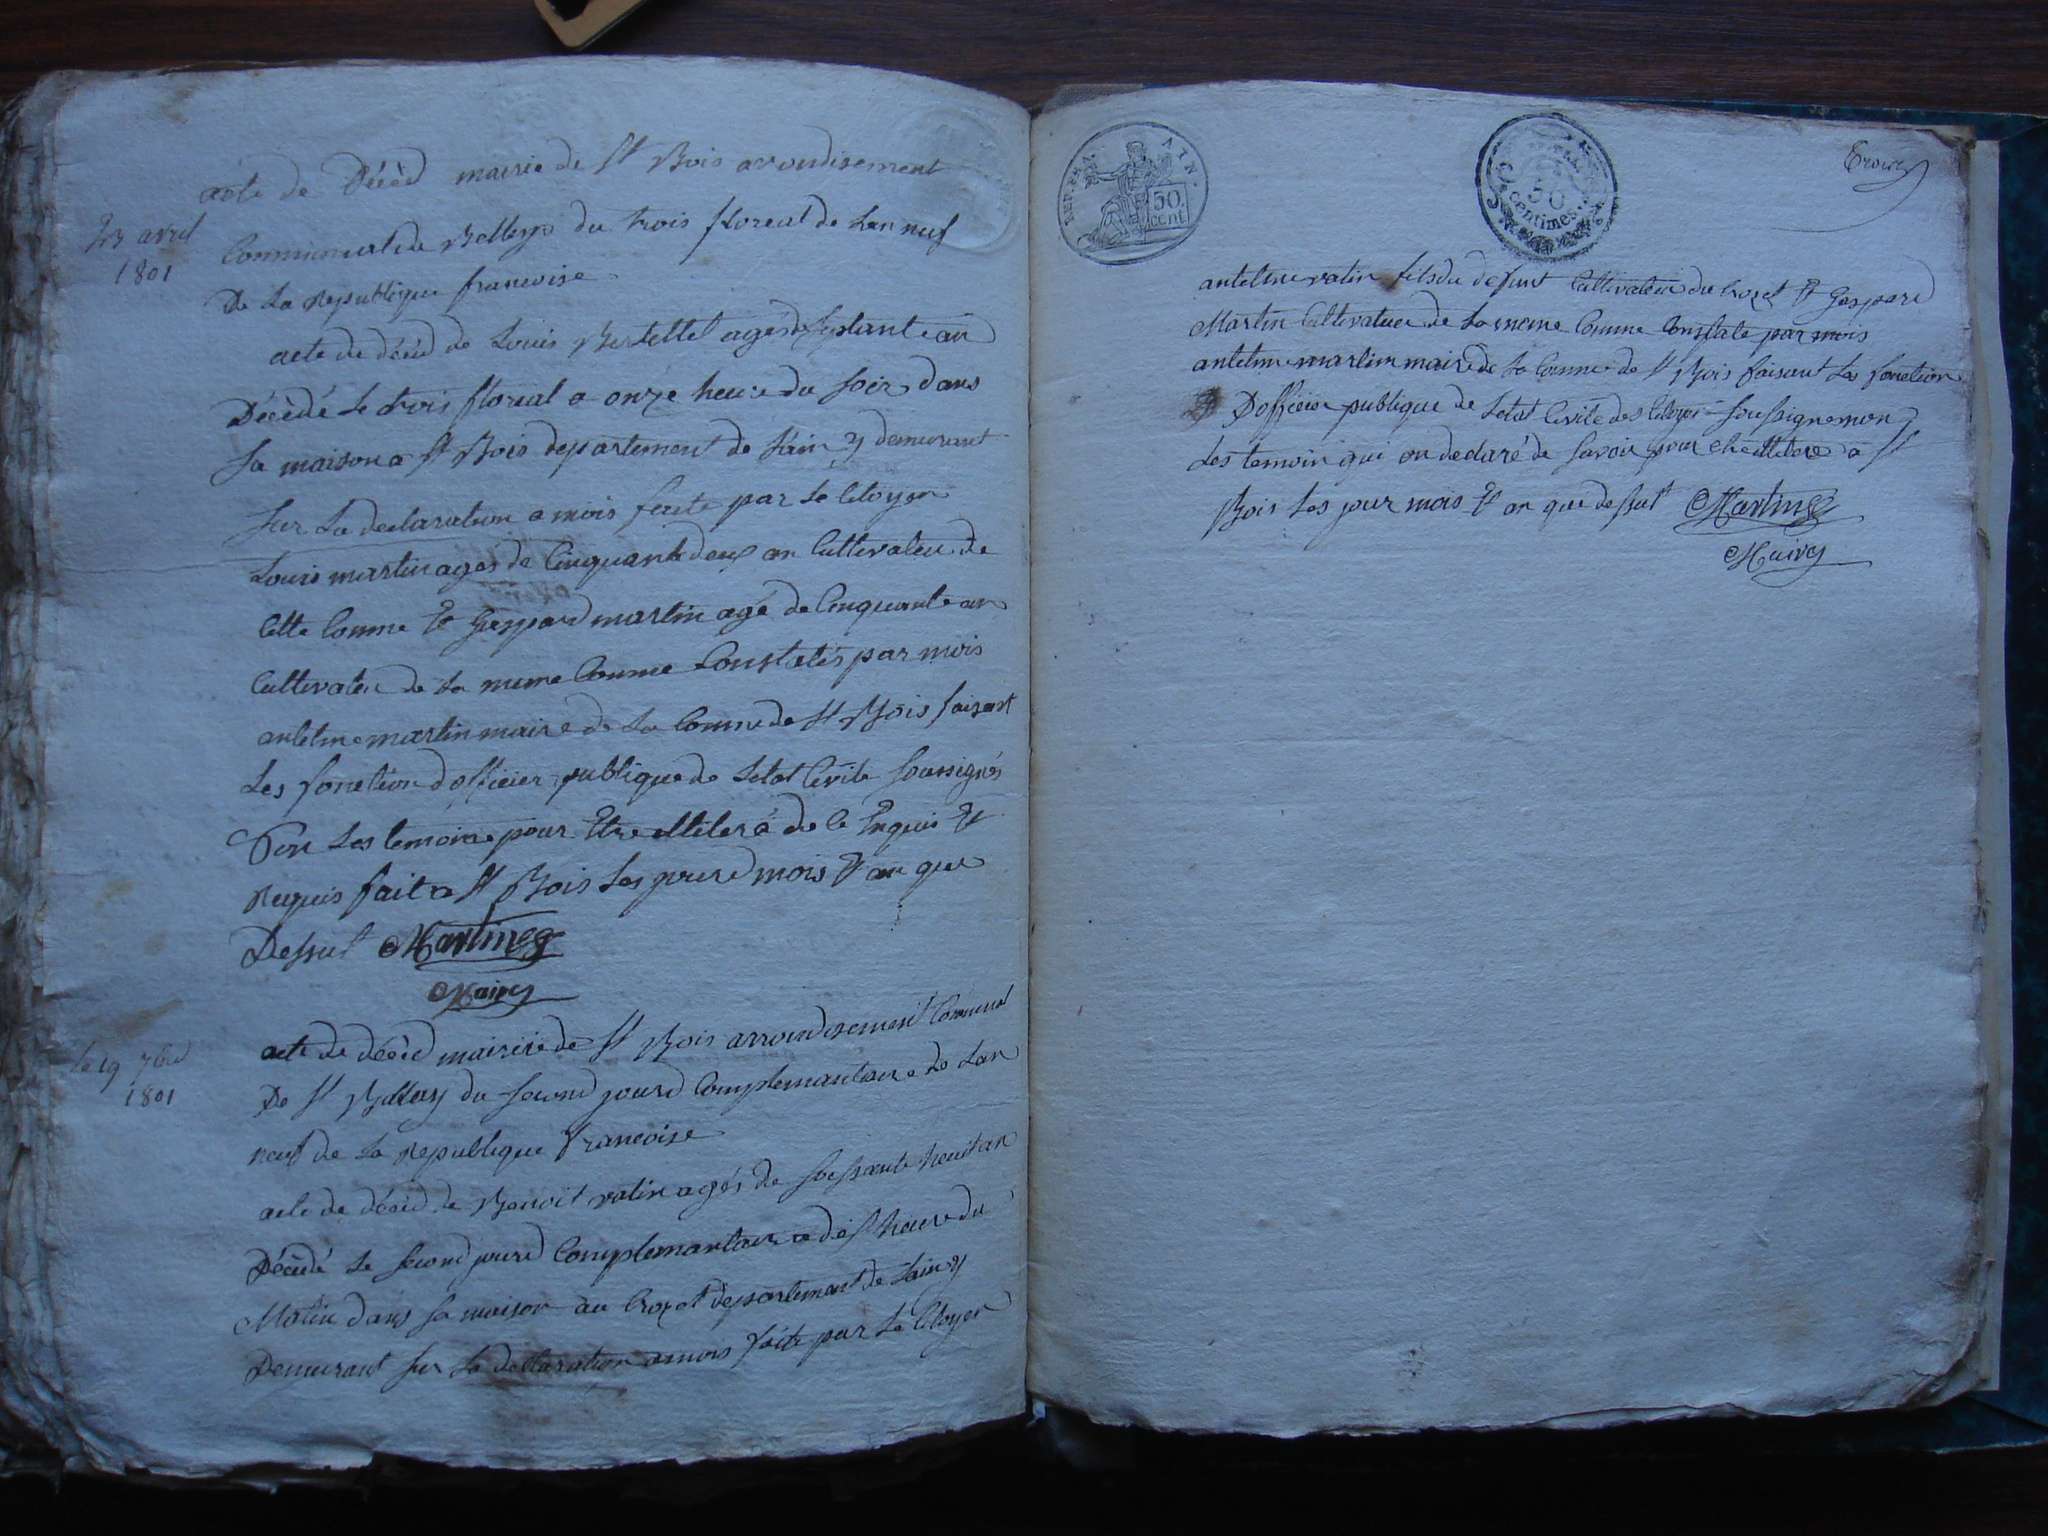 acte de Décèd mairie de St Bois arrondisement
23 avril
1801
Communal de Belleys du trois floreal de Lan neuf
De La Republique francoise
acte de décéd de Louis Bertettet agés de septante an
Décédé Le trois floreal a onze heure du soir dans
sa maison a St Bois departement de Lain y demeurant
sur La declaration a mois faite par Le Citoyen
Louis martin agés de Cinquante deux an Cultivateur de
Cette Comme Et Gaspard martin agé de Cinquante an
Cultivateur de La meme Comme Constatés par mois
antelme martin maire de La Comme de St Bois faisant
Les fonction d'officier publique de Letat Civile soussignés
Non Les temoins pour Etre illiteré de Ce Enquis Et
Requis fait a St Bois Les jours mois Et an que
Dessut Martin
Maire
Le 19 7bre
1801
acte de décèd mairie de St Bois arrondisement Communal
De St Belley du second jours Complemantaire de Lan
neuf de La Republique francoise
acte de décéd de Benoit vatin agés de soissante heuit an
Décédé Le second jours Complemantaire a dis heure du
Matin dans sa maison au Crozet departement de Lain y
Demeurant sur La declaration a mois faite par Le Citoyen
REP. FRA. AIN.
50
cent
50
centimes
Trois
antelme vatin fils du defunt Cultivateur du Crozet Et Gaspard
Martin Cultivateur de La meme Comme Constaté par mois
antelme martin maire de La Comme de St Bois faisant Les fonction
Dofficier publique de Letat Civile des Citoyens soussigne non
Les temoin qui on declaré de savoir pour Etre illiteré a St
Bois Les jour mois Et an que dessut Martin
Maire